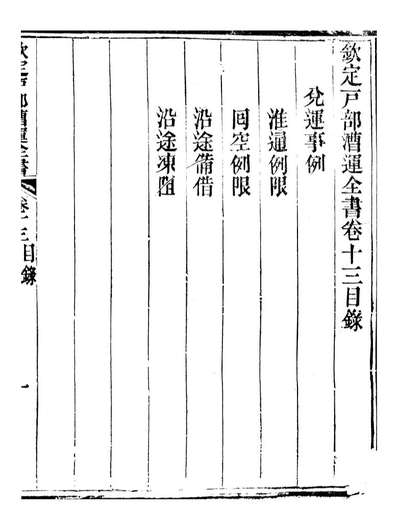 欽定戸部漕運全書卷十三目錄
兌運事例
淮通例限
囘空例限
沿途備借
沿途凍阻
欽定戸部漕運全書 卷十三目錄 一